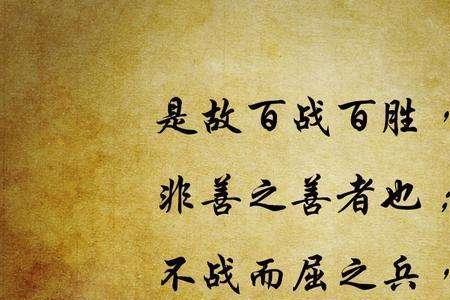 是故百战百胜，
非善之善者也；
不战而屈之兵，